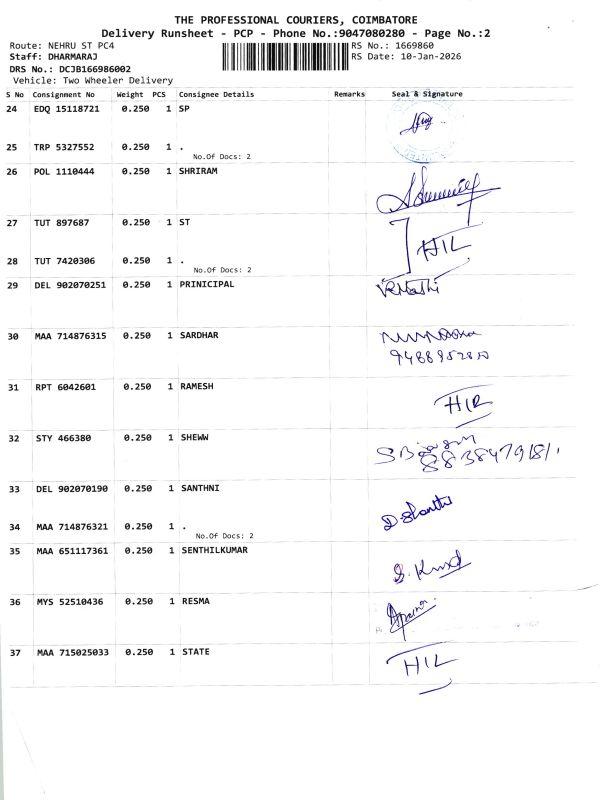 THE PROFESSIONAL COURIERS, COIMBATORE
Delivery Runsheet - PCP - Phone No.:9047080280 - Page No.:2
Route: NEHRU ST PC4 RS No.: 1669860
Staff: DHARMARAJ RS Date: 10-Jan-2026
DRS No.: DCJB166986002
Vehicle: Two Wheeler Delivery
S No Consignment No Weight PCS Consignee Details Remarks Seal & Signature
24 EDQ 15118721 0.250 1 SP
25 TRP 5327552 0.250 1 .
No.Of Docs: 2
26 POL 1110444 0.250 1 SHRIRAM
27 TUT 897687 0.250 1 ST
HIL
28 TUT 7420306 0.250 1 .
No.Of Docs: 2
29 DEL 902070251 0.250 1 PRINICIPAL
30 MAA 714876315 0.250 1 SARDHAR
31 RPT 6042601 0.250 1 RAMESH
32 STY 466380 0.250 1 SHEWW
33 DEL 902070190 0.250 1 SANTHNI
D. Shanthi
34 MAA 714876321 0.250 1 .
No.Of Docs: 2
35 MAA 651117361 0.250 1 SENTHILKUMAR
36 MYS 52510436 0.250 1 RESMA
37 MAA 715025033 0.250 1 STATE
HIL